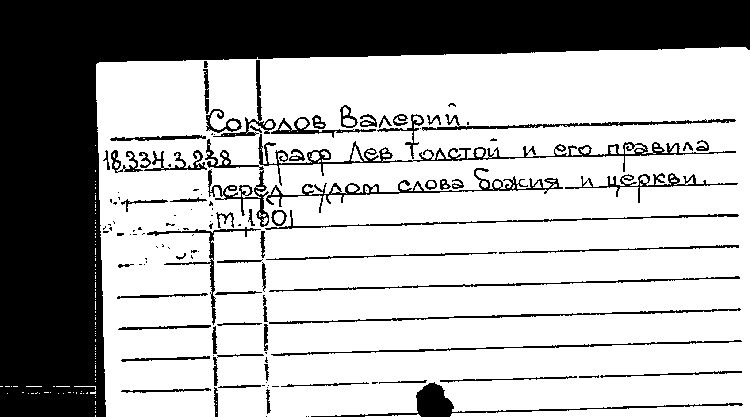 Соколов Валерий.
18.334.3.238 Граф Лев Толстой и его правила
перед судом слова божия и церкви.
т. 1901